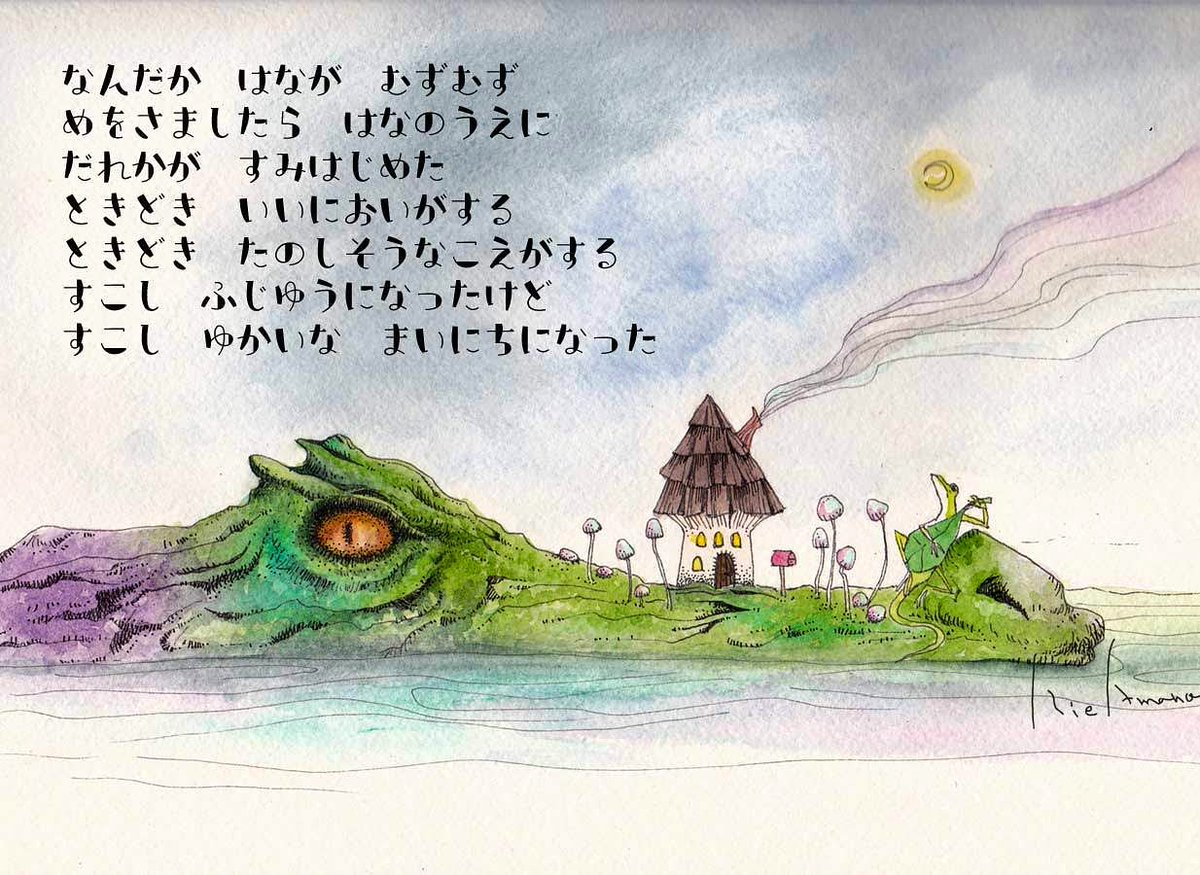 なんだか　はなが　むずむず
めをさましたら　はなのうえに
だれかが　すみはじめた
ときどき　いいにおいがする
ときどき　たのしそうなこえがする
すこし　ふじゆうになったけど
すこし　ゆかいな　まいにちになった